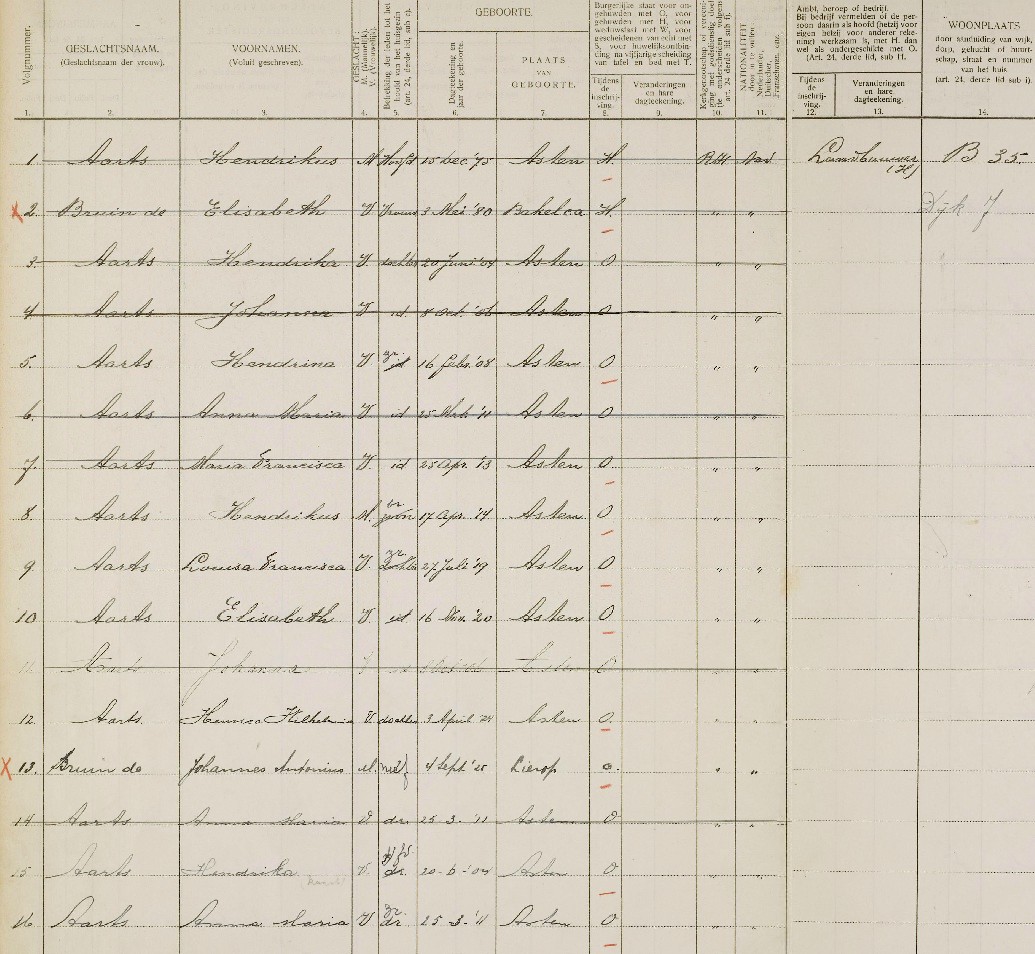 Volgnummer.
1.
GESLACHTSNAAM.
(Geslachtsnaam der vrouw).
2.
VOORNAMEN.
(Voluit geschreven).
3.
GESLACHT:
M. (Mannelijk).
V. (Vrouwelijk).
4.
Betrekking der leden tot het
hoofd van het huisgezin
(art. 24, derde lid, sub c).
5.
GEBOORTE.
Dagteekening en
jaar der geboorte.
6.
PLAATS
VAN
GEBOORTE.
7.
Burgerlijke staat voor on-
gehuwden met O, voor
gehuwden met H, voor
weduwstaat met W, voor
gescheidenen van echt met
S, voor huwelijksontbin-
ding na vijfjarige scheiding
van tafel en bed met T.
Tijdens
de
inschrij-
ving.
8.
Veranderingen
en hare
dagteekening.
9.
10.
NATIONALITEIT
Nederlander,
Duitscher,
Franschman, enz.
11.
Ambt, beroep of bedrijf.
Bij bedrijf vermelden of de per-
soon daarin als hoofd (hetzij voor
eigen hetzij voor anderer reke-
ning) werkzaam is, met H. dan
wel als ondergeschikte met O.
(Art. 24, derde lid, sub H.
Tijdens
de
inschrij-
ving.
12.
Veranderingen
en hare
dagteekening.
13.
WOONPLAATS
door aanduiding van wijk,
dorp, gehucht of buurt-
schap, straat en nummer
van het huis
(art. 24, derde lid sub i).
14.
1 Aarts Hendrikus M Hoofd 15 Dec '75 Asten H. R.K. Ned Landbouwer (H) B 35.
x 2. Bruin de Elisabeth V Vrouw 3 Mei '80 Bakel ca H. " " Dijk 7
3. Aarts Hendrika V. dochter 20 Juni '04 Asten O " "
4. Aarts Johanna V id 8 Oct. '06 Asten O " "
5. Aarts Hendrina V. zr. id 16 Febr. '08 Asten O " "
6. Aarts Anna Maria V id 25 Mrt. '11 Asten O " "
7. Aarts Maria Francisca V. id 25 Apr. '13 Asten O " "
8. Aarts Hendrikus M. br zoon 17 Apr. '14 Asten O " "
9. Aarts Louisa Francisca V. zr. dochter 27 Juli '19 Asten O " "
10 Aarts Elisabeth V. id 16 Nov. '20 Asten O " "
11 Aarts Johanna V Asten O "
12 Aarts. Wilhelmina V. dochter 3 April '24 Asten O. " "
x 13. Bruin de Johannes Antonius M. neef 4 Sept '25 Lierop O. " "
14 Aarts Anna Maria V dr. 25-3-'11 Asten O " "
15 Aarts Hendrika V. dr. 20-6-'04 Asten O " "
16 Aarts Anna Maria V zr. dr 25-3-'11 Asten O " "